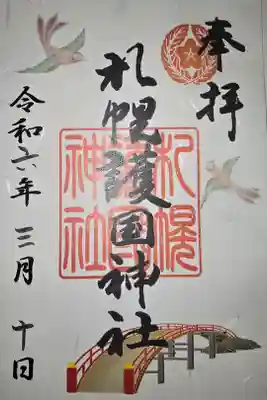 奉拝
札幌護国神社
札幌護國神社
令和六年 三月 十日